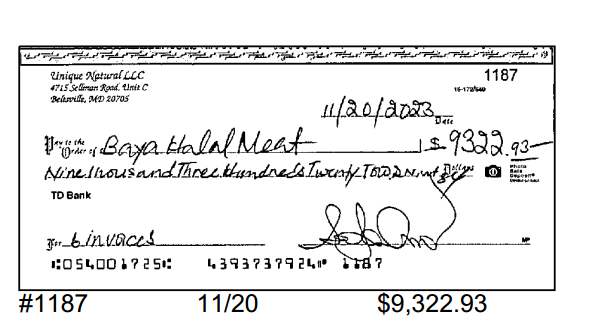 Unique Natural LLC 1187
4715 Sellman Road, Unit C 
Beltsville, MD 20705
11/20/2023
Date
Pay to the
Order of Baya Halal Meat $ 9322.93
Nine thousand Three Hundreds Twenty Dollars
Photo
Safe
Deposit
TD Bank
For 6 invoices MP
⑆054001725⑆ 4393737924⑈ 1187
#1187 11/20 $9,322.93